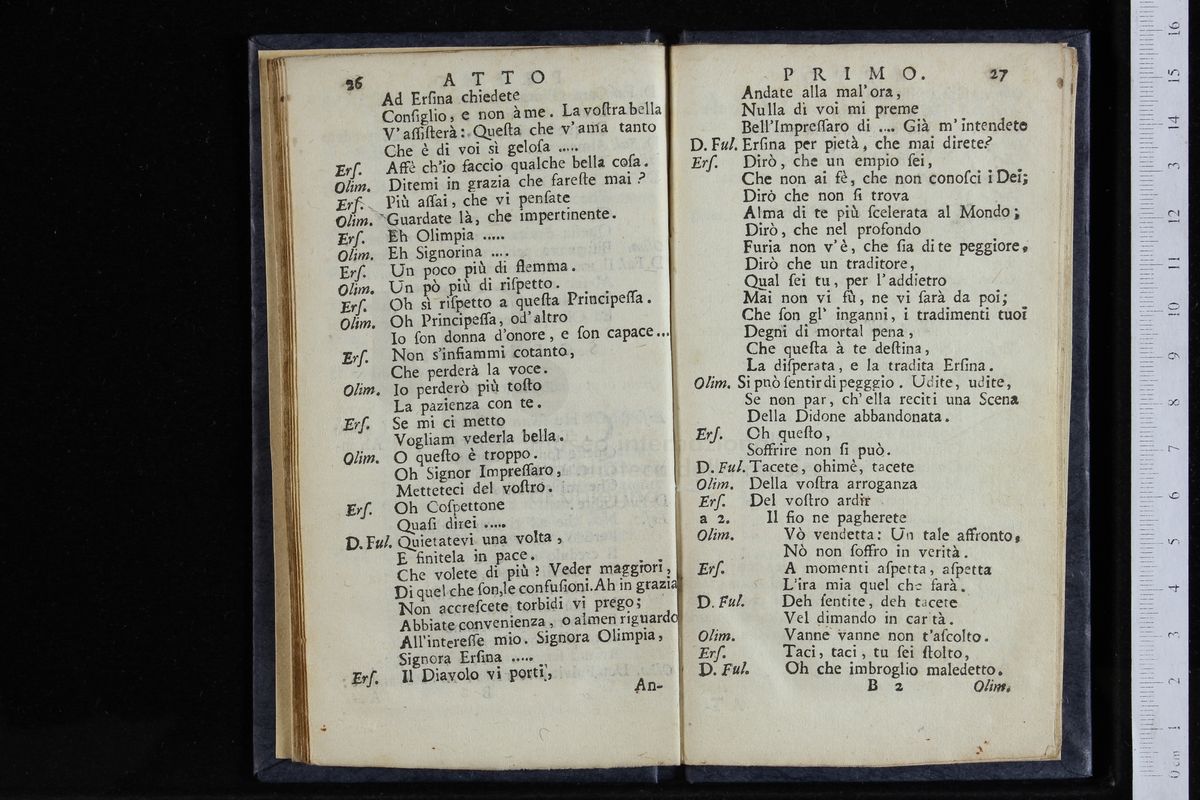 26 ATTO
Ad Erſina chiedete
Conſiglio, e non à me. La voſtra bella
V'aſſiſterà: Queſta che v'ama tanto
Che è di voi sì geloſa .....
Erſ. Affè ch'io faccio qualche bella coſa.
Olim. Ditemi in grazia che fareſte mai?
Erſ. Più aſſai, che vi penſate
Olim. Guardate là, che impertinente.
Erſ. Eh Olimpia .....
Olim. Eh Signorina ....
Erſ. Un poco più di flemma.
Olim. Un pò più di riſpetto.
Erſ. Oh sì riſpetto a queſta Principeſſa.
Olim. Oh Principeſſa, od'altro
Io ſon donna d'onore, e ſon capace...
Erſ. Non s'infiammi cotanto,
Che perderà la voce.
Olim. Io perderò più toſto
La pazienza con te.
Erſ. Se mi ci metto
Vogliam vederla bella.
Olim. O queſto è troppo.
Oh Signor Impreſſaro,
Metteteci del voſtro.
Erſ. Oh Coſpettone
Quaſi direi .....
D. Ful. Quietatevi una volta,
E finitela in pace.
Che volete di più? Veder maggiori,
Di quel che ſon, le confuſioni. Ah in grazia
Non accreſcete torbidi vi prego;
Abbiate convenienza, o almen riguardo
All'intereſſe mio. Signora Olimpia,
Signora Erſina .....
Erſ. Il Diavolo vi porti,
An-
PRIMO. 27
Andate alla mal'ora,
Nulla di voi mi preme
Bell'Impreſſaro di .... Già m'intendete
D. Ful. Erſina per pietà, che mai direte?
Erſ. Dirò, che un empio ſei,
Che non ai fè, che non conoſci i Dei;
Dirò che non ſi trova
Alma di te più ſcelerata al Mondo;
Dirò, che nel profondo
Furia non v'è, che ſia di te peggiore,
Dirò che un traditore,
Qual ſei tu, per l'addietro
Mai non vi fù, ne vi ſarà da poi;
Che ſon gl' inganni, i tradimenti tuoi
Degni di mortal pena,
Che queſta à te deſtina,
La diſperata, e la tradita Erſina.
Olim. Si può ſentir di pegggio. Udite, udite,
Se non par, ch'ella reciti una Scena
Della Didone abbandonata.
Erſ. Oh queſto,
Soffrire non ſi può.
D. Ful. Tacete, ohimè, tacete
Olim. Della voſtra arroganza
Erſ. Del voſtro ardir
a 2. Il fio ne pagherete
Olim. Vò vendetta: Un tale affronto,
Nò non ſoffro in verità.
Erſ. A momenti aſpetta, aſpetta
L'ira mia quel che ſarà.
D. Ful. Deh ſentite, deh tacete
Vel dimando in carità.
Olim. Vanne vanne non t'aſcolto.
Erſ. Taci, taci, tu ſei ſtolto,
D. Ful. Oh che imbroglio maledetto.
B 2 Olim.
0 cm 1 2 3 4 5 6 7 8 9 10 11 12 13 14 15 16
1 2 3 4 5 6